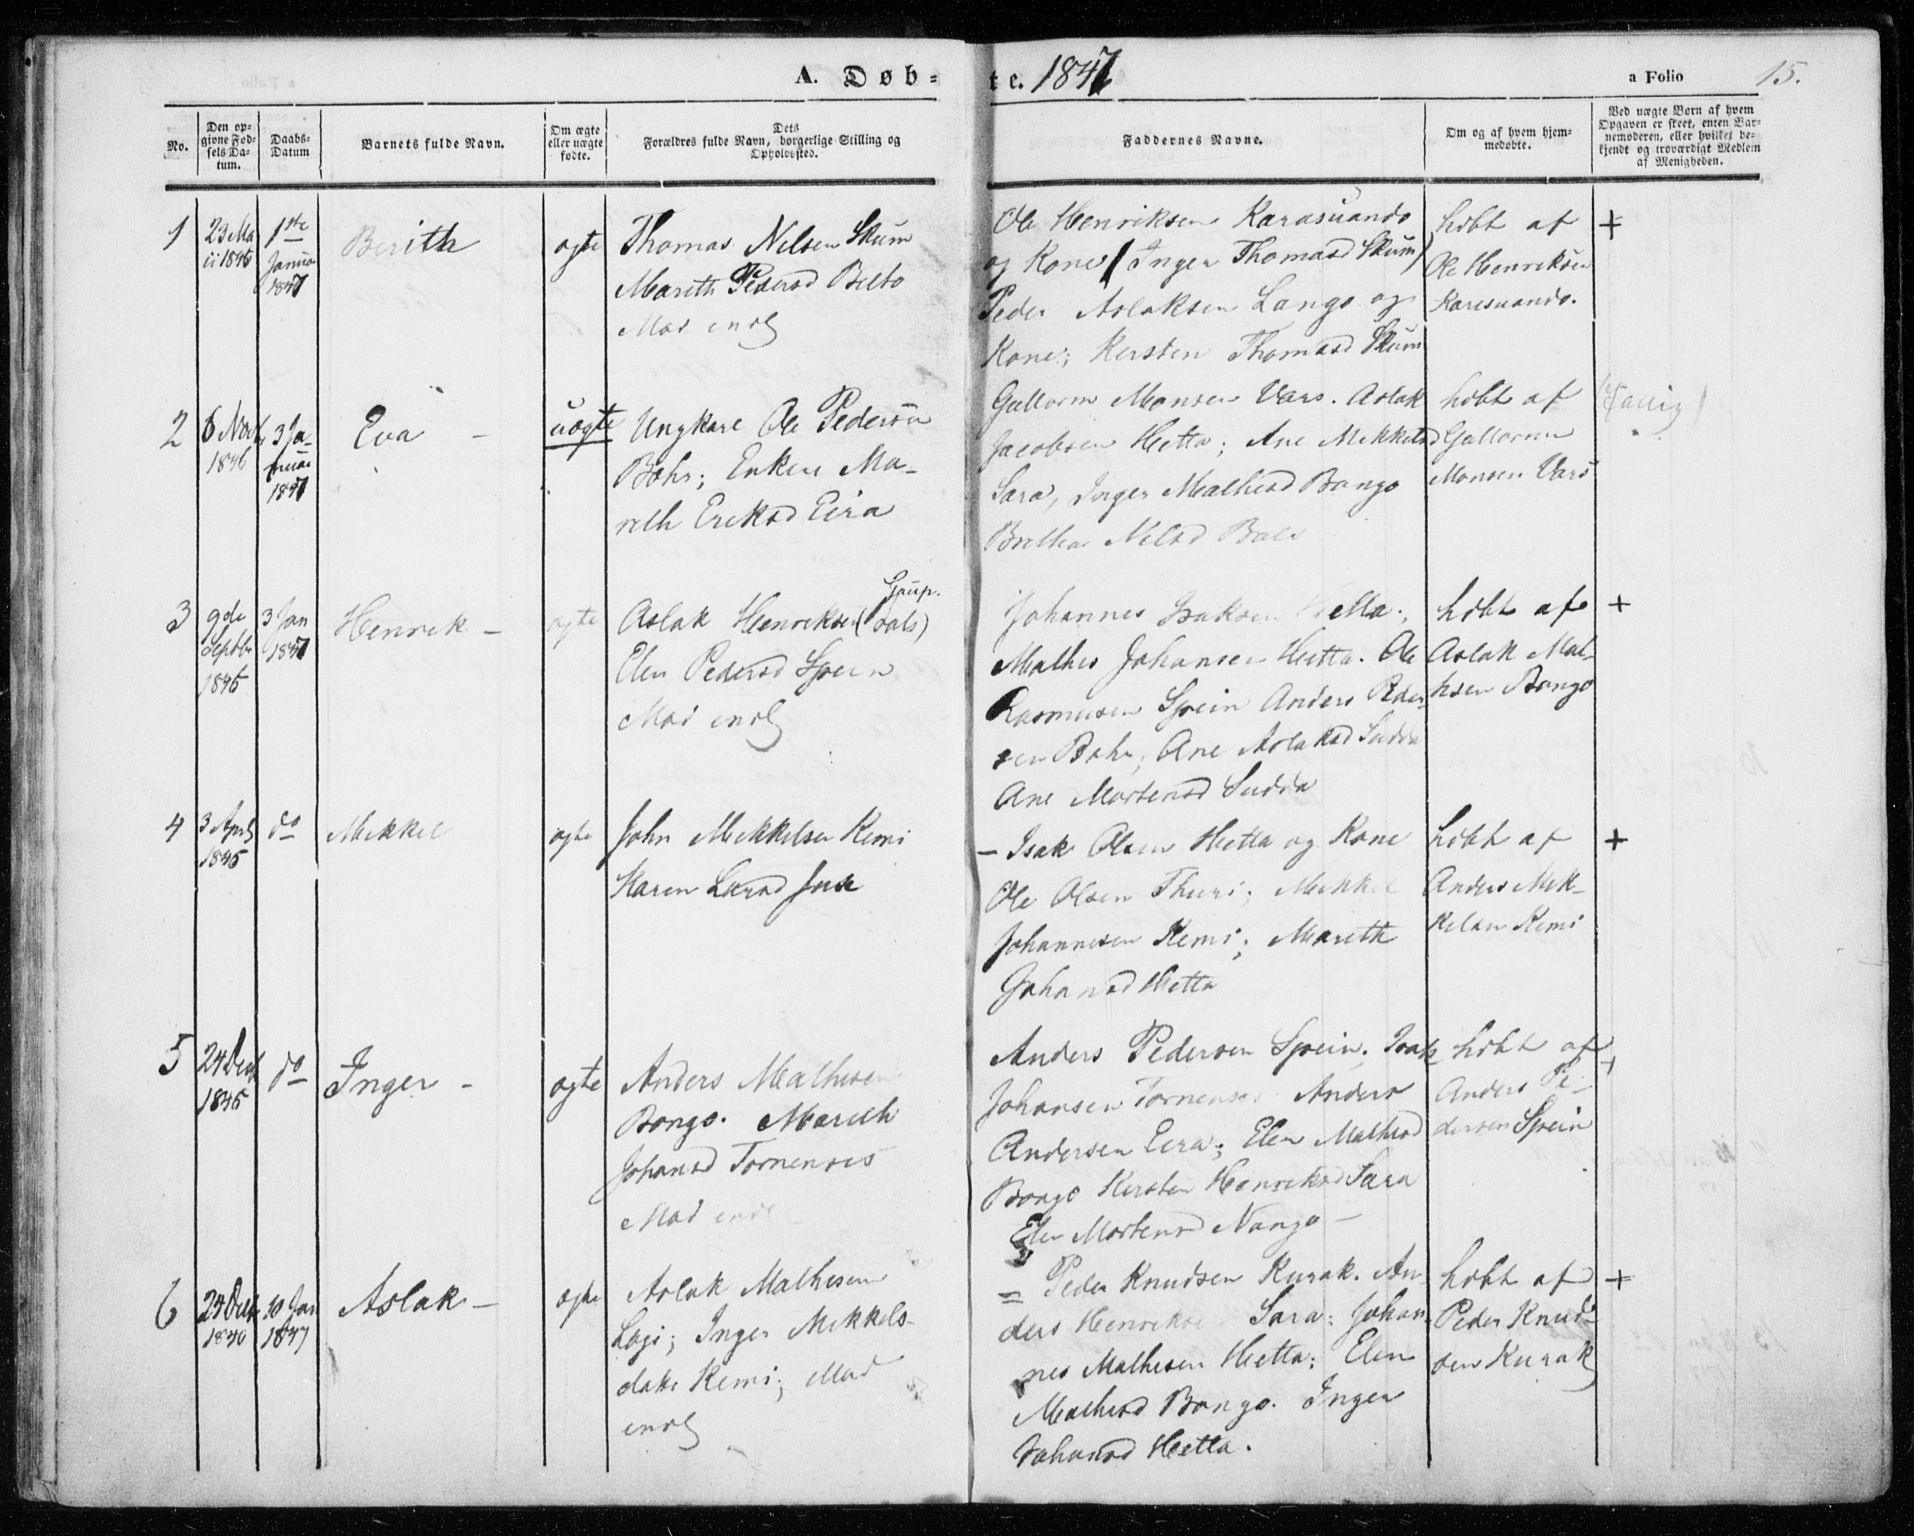 A. Døbte. 1847 a Folio 15.
No.
Den opgivne Fødsels Datum.
Daabs-Datum
Barnets fulde Navn.
Om ægte eller uægte fødte.
Dets Forældres fulde Navn, borgerlige Stilling og Opholdssted.
Faddernes Navne.
Om og af hvem hjemmedøbte.
Ved uægte Børn af hvem Opgaven er skeet, enten Barnemoderen, eller hvilket bekjendt og troværdigt Medlem af Menigheden.
1
23 Ma
ii 1846
1ste
Janua
1847
Berith
ægte
Thomas Nilsen Skum
Marith Pedersd Belto
Ole Henriksen Karasuando
og Kone (Inger Thomasd Skum)
Peder Aslaksen Lango og
Kone; Kersten Thomasd Skum
hdbt af
Ole Henriksen
Karesuando.
+
2
6 Novb
1846
3 Ja-
nuar
1847
Eva –
uægte
Ungkarl Ole Pedersen
Bæhr; Enken Ma-
reth Eriksd Eira
Guttorm Monsen Vars. Aslak
Jacobsen Hetta; Ane Mekkelsd
Sara, Inger Mathisd Bongo
Brethe Nilsd Bals
hdbt af
Guttorm
Monsen Vars
3
9de
Septbr
1846
3 Jan
1847
Henrik –
ægte
Aslak Henriksen
Elen Pedersd Spein
Johannes Isaksen Hetta;
Mathis Johansen Hetta. Ole
Rasmusen Spein Anders Peder-
sen Bæhr; Ane Aslaksd Sudda
Ane Mortensd Sudda
hdbt af
Aslak Mat-
hsen Bongo
+
4
3 April
1846
do
Mikkel
ægte
John Mekkelsen Kemi
Karen Larsd Jux
– Isak Olsen Hetta og Kone
Ole Olsen Thuri; Mikkel
Johannesen Kemi; Mareth
Johansd Hetta
hdbt af
Anders Mik-
kelsen Kemi
+
5
24 Decb
1846
do
Inger –
ægte
Anders Mathisen
Bongo. Mareth
Johansd Tornensis
Anders Pedersen Spein; Isak
Johansen Tornensis Anders
Andersen Eira; Elen Mathisd
Bongo Kersten Henriksd Sara
Elen Mortensd Nango –
hdbt af
Anders Pe-
dersen Spein
+
6
24 Decb
1846
10 Jan
1847
Aslak –
ægte
Aslak Mathisen
Logi; Inger Mikkels-
datter Kemi;
= Peder Knudsen Kurak. An-
ders Henriksen Sara; Johan-
nes Mathisen Hetta; Elen
Mathisd Bongo. Inger
Johansd Hetta.
hdbt af
Peder Knud-
sen Kurak
+